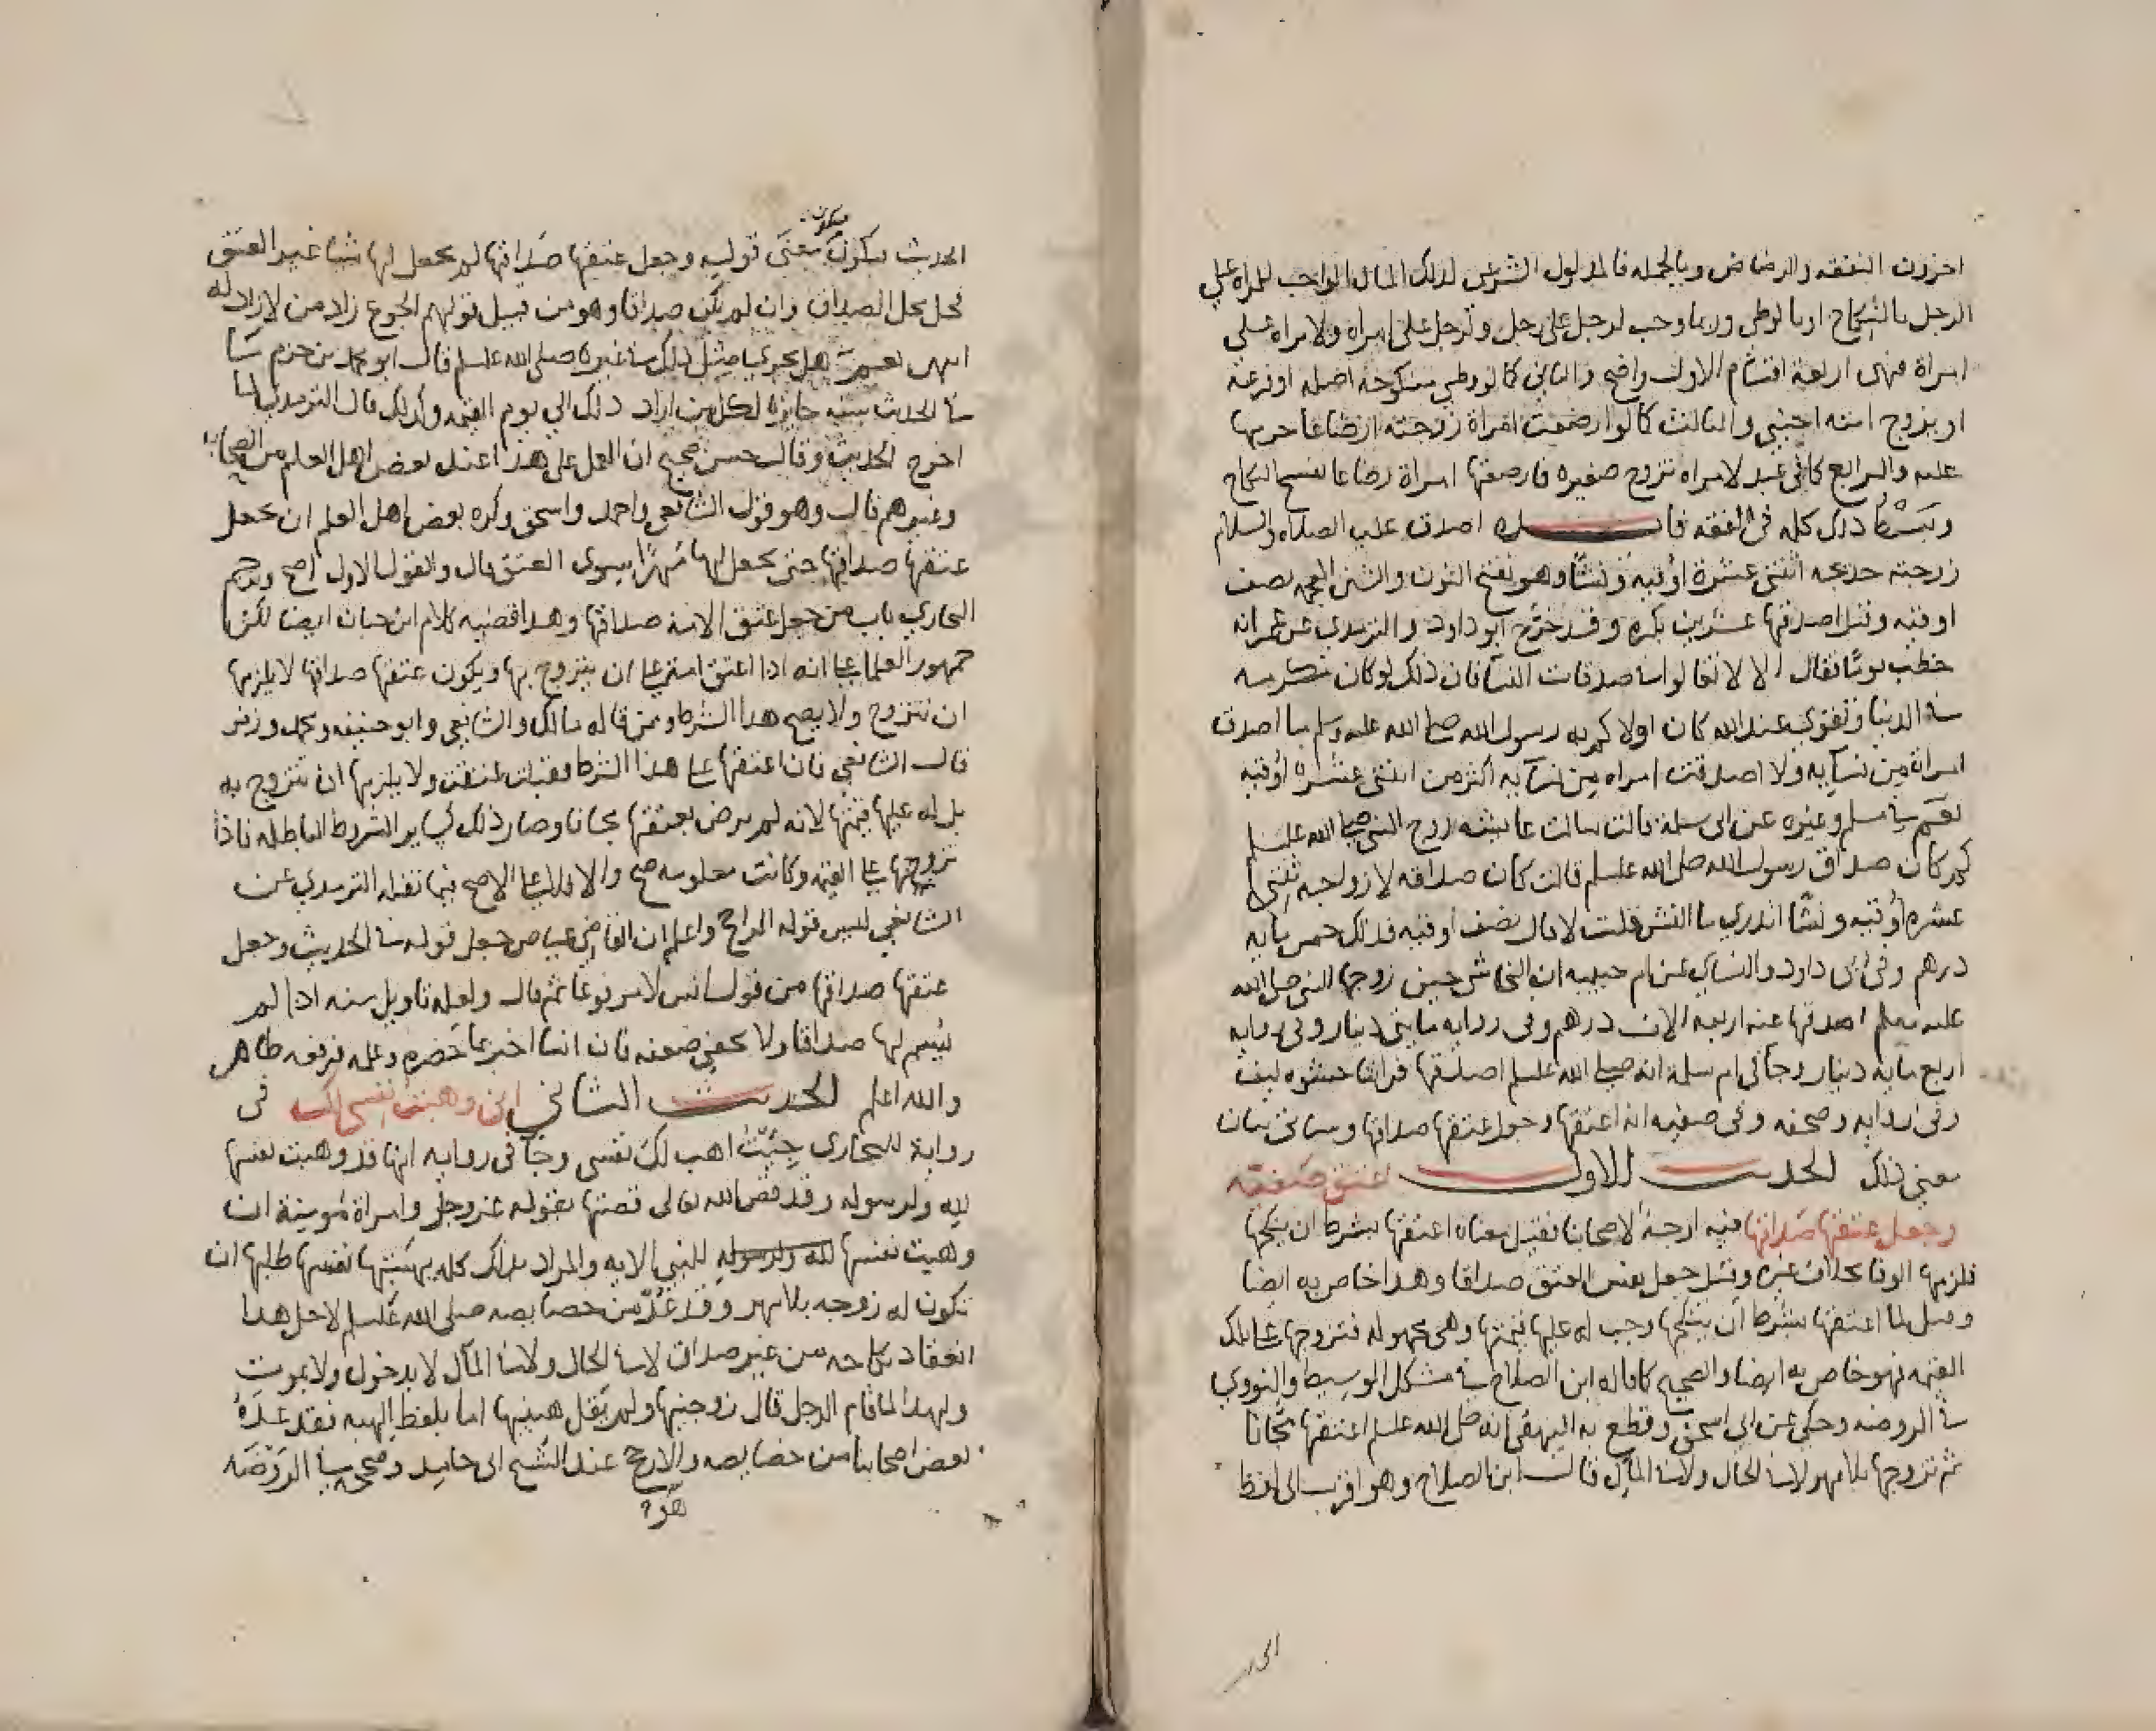 اخرزت النفقه والرضاض وبالجمله فالمدلول الشرعى لذلك المال الواجب للمراه على
الرجل بالنكاح او بالوطى وربما وجب لرجل على رجل ولرجل على امراه ولامراه على
امراة فهى اربعة اقسام الاول واضح والثانى كالو وطى منكوحة اصله او فرعه
او بزوج امته اجنبي والثالث كالو ارضعت امراة زوجته ارضاعا حرمها
عليه والرابع كافى عبد لامراه تزوج صغيره فارضعتها امراة رضاعا يفسخ النكاح
وبسط ذلك كله فى الفقه اصدق عليه الصلاه والسلام
زوجته خديجه اثنتى عشرة أوقيه ونشا وهو بفتح النون والشين المعجمه نصف
اوقيه وقيل اصدقها عشرين بكره وقد خرج ابو داود والترمذي عن عمر انه
خطب يوما فقال الا لا تغالوا صدقات النسا فان ذلك لو كان مكرمه
فى الدنيا وتقوى عند الله كان اولاكم به رسول الله صلى الله عليه وسلم ما اصدق
امراة من نسايه ولا اصدقت امراه من بناته اكثر من اثنتى عشره أوقيه
نعم فى مسلم وغيره عن ابى سلمة قالت سالت عايشه زوج النبى صلى الله عليه وسلم
كم كان صداق رسول الله صلى الله عليه وسلم قالت كان صداقه لازواجه ثنتى
عشره أوقيه ونشا اتدري ما النش قلت لا قال نصف أوقيه فذلك خمس مايه
درهم وفى ابى داود والنساى عن ام حبيبه ان النجاشى حين زوجها النبى صلى الله
عليه وسلم اصدقها عنه اربعه الاف درهم وفى روايه مايتى دينار وفى روايه
اربع مايه دينار وجا فى ام سلمة انه صلى الله عليه وسلم اصدقها فراشا حشوه ليف
وفى روايه وصحفه وفى صفيه انه اعتقها وجعل عتقها صداقها وسياتى بيان
معنى ذلك الحديث الاول اعتق صفيه
وجعل عتقها صداقها فيه اوجه لاصحابنا فقيل معناه اعتقها بشرط ان ينكحها
فلزمها الوفا بخلاف غيره وقيل جعل نفس العتق صداقا وهذا خاص به ايضا
وقيل لما اعتقها بشرط ان ينكحها وجب له عليها قيمتها وهى مجهوله فتزوجها على تلك
القيمه فهو خاص به ايضا والصحيح كما قاله ابن الصلاح فى مشكل الوسيط والنووي
فى الروضه وحكى عن ابى اسحق وقطع به البيهقى انه صلى الله عليه وسلم اعتقها مجانا
ثم تزوجها بلا مهر لا فى الحال ولا فى المآل قال ابن الصلاح وهو اقرب الى لفظ
الحد
الحديث فيكون معنى قوله وجعل عتقها صداقها لم يجعل لها شيا غير العتق
فحل محل الصداق وان لم يكن صداقا وهو من قبيل قولهم الجوع زاد من لا زاد له
انتهى نعم هل يجري مثل ذلك فى غيره صلى الله عليه وسلم قال ابو محمد بن حزم ما
فى الحديث سنه جايزة لكل من اراد ذلك الى يوم القيمه وكذلك قال الترمذي لما
اخرج الحديث وقال حسن صحيح ان العمل على هذا عند بعض اهل العلم من الصحابه
وغيرهم قال وهو قول الشافعى واحمد واسحق وكره بعض اهل العلم ان يجعل
عتقها صداقها حتى يجعل لها مهرا سوى العتق قال والقول الاول اصح وترجم
البخاري باب من جعل عتق الامة صداقها وهذا قضيه كلام ابن حبان ايضا لكن
جمهور العلما على انه اذا اعتق امته على ان يتزوج بها ويكون عتقها صداقها لا يلزمها
ان تتزوج ولا يصح هذا الشرط وممن قاله مالك والشافعى وابو حنيفه ومحمد وزفر
قال الشافعى فان اعتقها على هذا الشرط فقبلت عتقت ولا يلزمها ان تتزوج به
بل له عليها قيمتها لانه لم يرض بعتقها مجانا وصار ذلك كساير الشروط الباطله فاذا
تزوجها على القيمه وكانت معلومه صح والا فلا على الاصح فيما نقله الترمذي عن
الشافعى ليس قوله الراجح واعلم ان القاضى عياض جعل قوله فى الحديث وجعل
عتقها صداقها من قول انس لا مرفوعا ثم قال ولعله تاويل منه اذا لم
يسم لها صداقا ولا يخفى ضعفه فان انسا اخبر عما حضره وعلمه فرفعه ظاهر
والله اعلم الحديث الثانى انى وهبت نفسى لك فى
رواية للبخارى جيت اهب لك نفسى وجا فى روايه انها قد وهبت نفسها
لله ولرسوله وقد قص الله تعالى قصتها بقوله عز وجل وامراة مومنة ان
وهبت نفسها لله ولرسوله للنبى الايه والمراد بذلك كله بهبتها نفسها طلبها ان
تكون له زوجه بلا مهر وقد عد من خصايصه صلى الله عليه وسلم لاجل هذا
انعقاد نكاحه من غير صداق لا فى الحال ولا فى المآل لا بدخول ولا بموت
ولهذا لما قام الرجل قال زوجنيها ولم يقل هبنيها اما بلفظ الهبه فقد عده
بعض اصحابنا من خصايصه والارجح عند الشيخ ابى حامد وصححه فى الروضه
هو